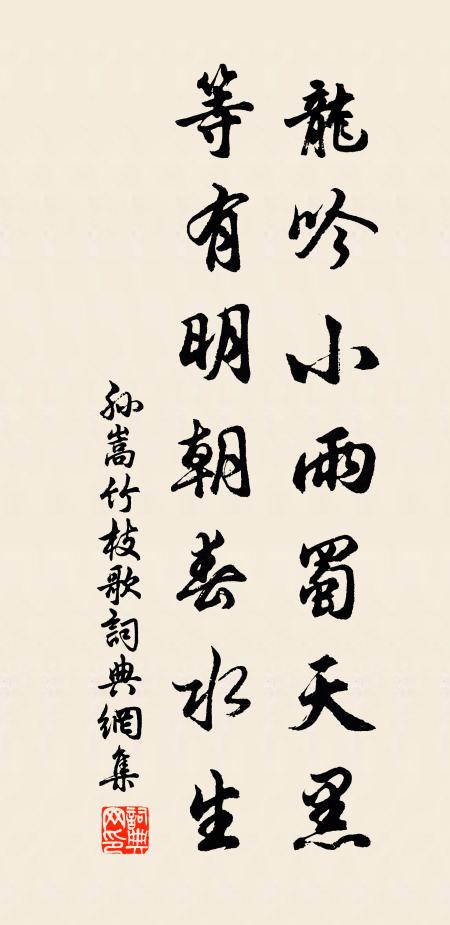 龍吟小雨蜀天黑
等有明朝春水生
孫嵩竹枝歌詞典網集
詞典網印